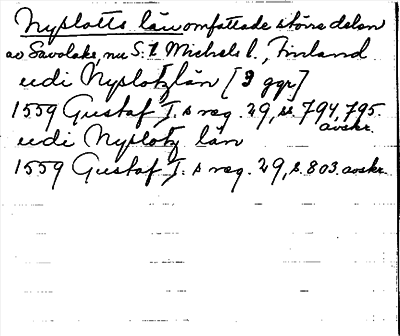 Nyslotts län omfattade större delen
av Savolaks, nu S:t Michels l., Finland
udi Nyslotz län [3 ggr]
1559 Gustaf I.s reg. 29, s. 794, 795.
avskr.
udi Nyslotz län
1559 Gustaf I.s reg. 29, s. 803. avskr.